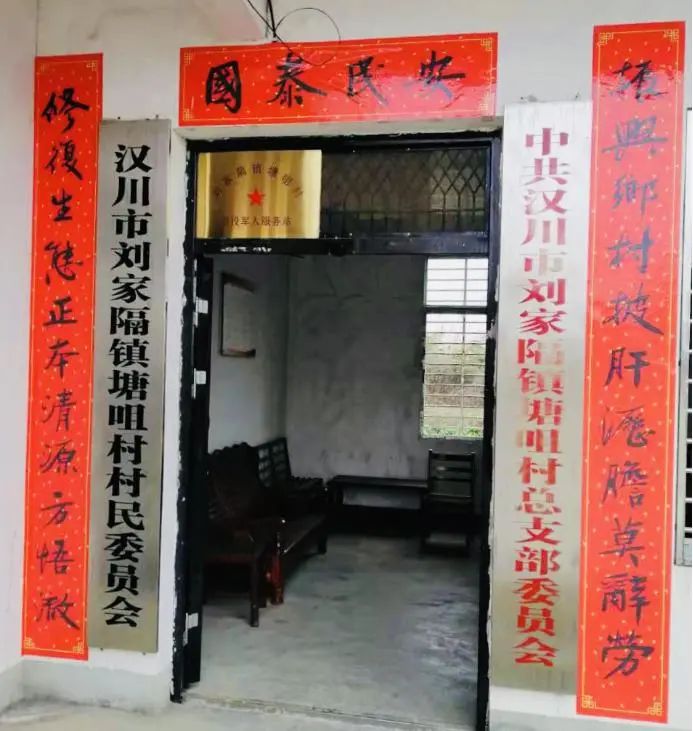 國泰民安
振興鄉村披肝瀝膽莫辭勞
修復生態正本清源方悟澈
中共汉川市刘家隔镇塘咀村总支部委员会
汉川市刘家隔镇塘咀村村民委员会
刘家隔镇塘咀村
退役军人服务站